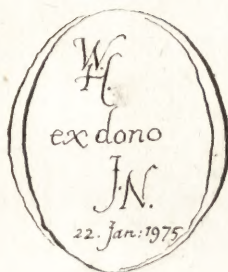 W.
H.
ex dono
J.N.
22. Jan: 1975